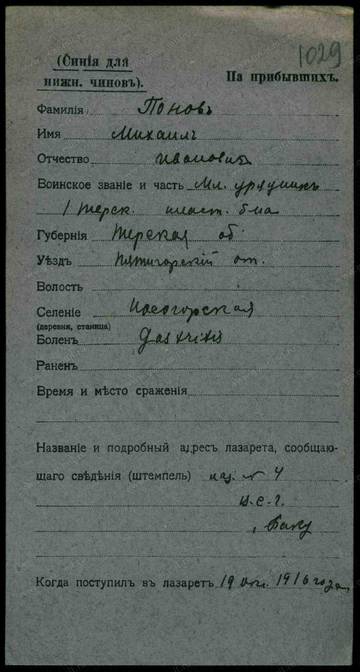 1029
(Синія для
нижн. чиновъ).
На прибывшихъ.
Фамилія Поповъ
Имя Михаилъ
Отчество Ивановичъ
Воинское званіе и часть Мл. урядникъ
1 Терск. пласт. б-на
Губернія Терская об.
Уѣздъ Пятигорскій от.
Волость
Селеніе
(деревня, станица)
Боленъ Gastritis
Раненъ
Время и мѣсто сраженія
Названіе и подробный адресъ лазарета, сообщаю-
щаго свѣдѣнія (штемпель) лаз. № 4
Баку
Когда поступилъ въ лазаретъ 19 1916 года